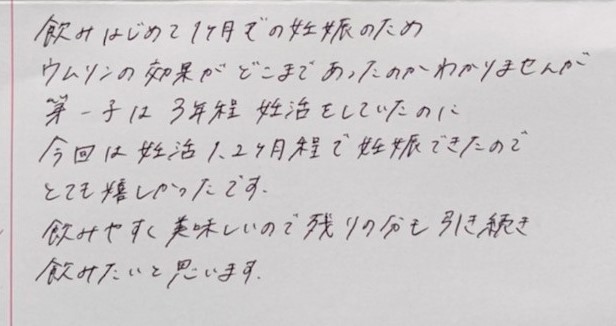 飲みはじめて1ヶ月での妊娠のため
ウムリンの効果がどこまであったのかわかりませんが
第一子は3年程妊活をしていたのに
今回は妊活1、2ヶ月程で妊娠できたので
とても嬉しかったです。
飲みやすく美味しいので残りの分も引き続き
飲みたいと思います。